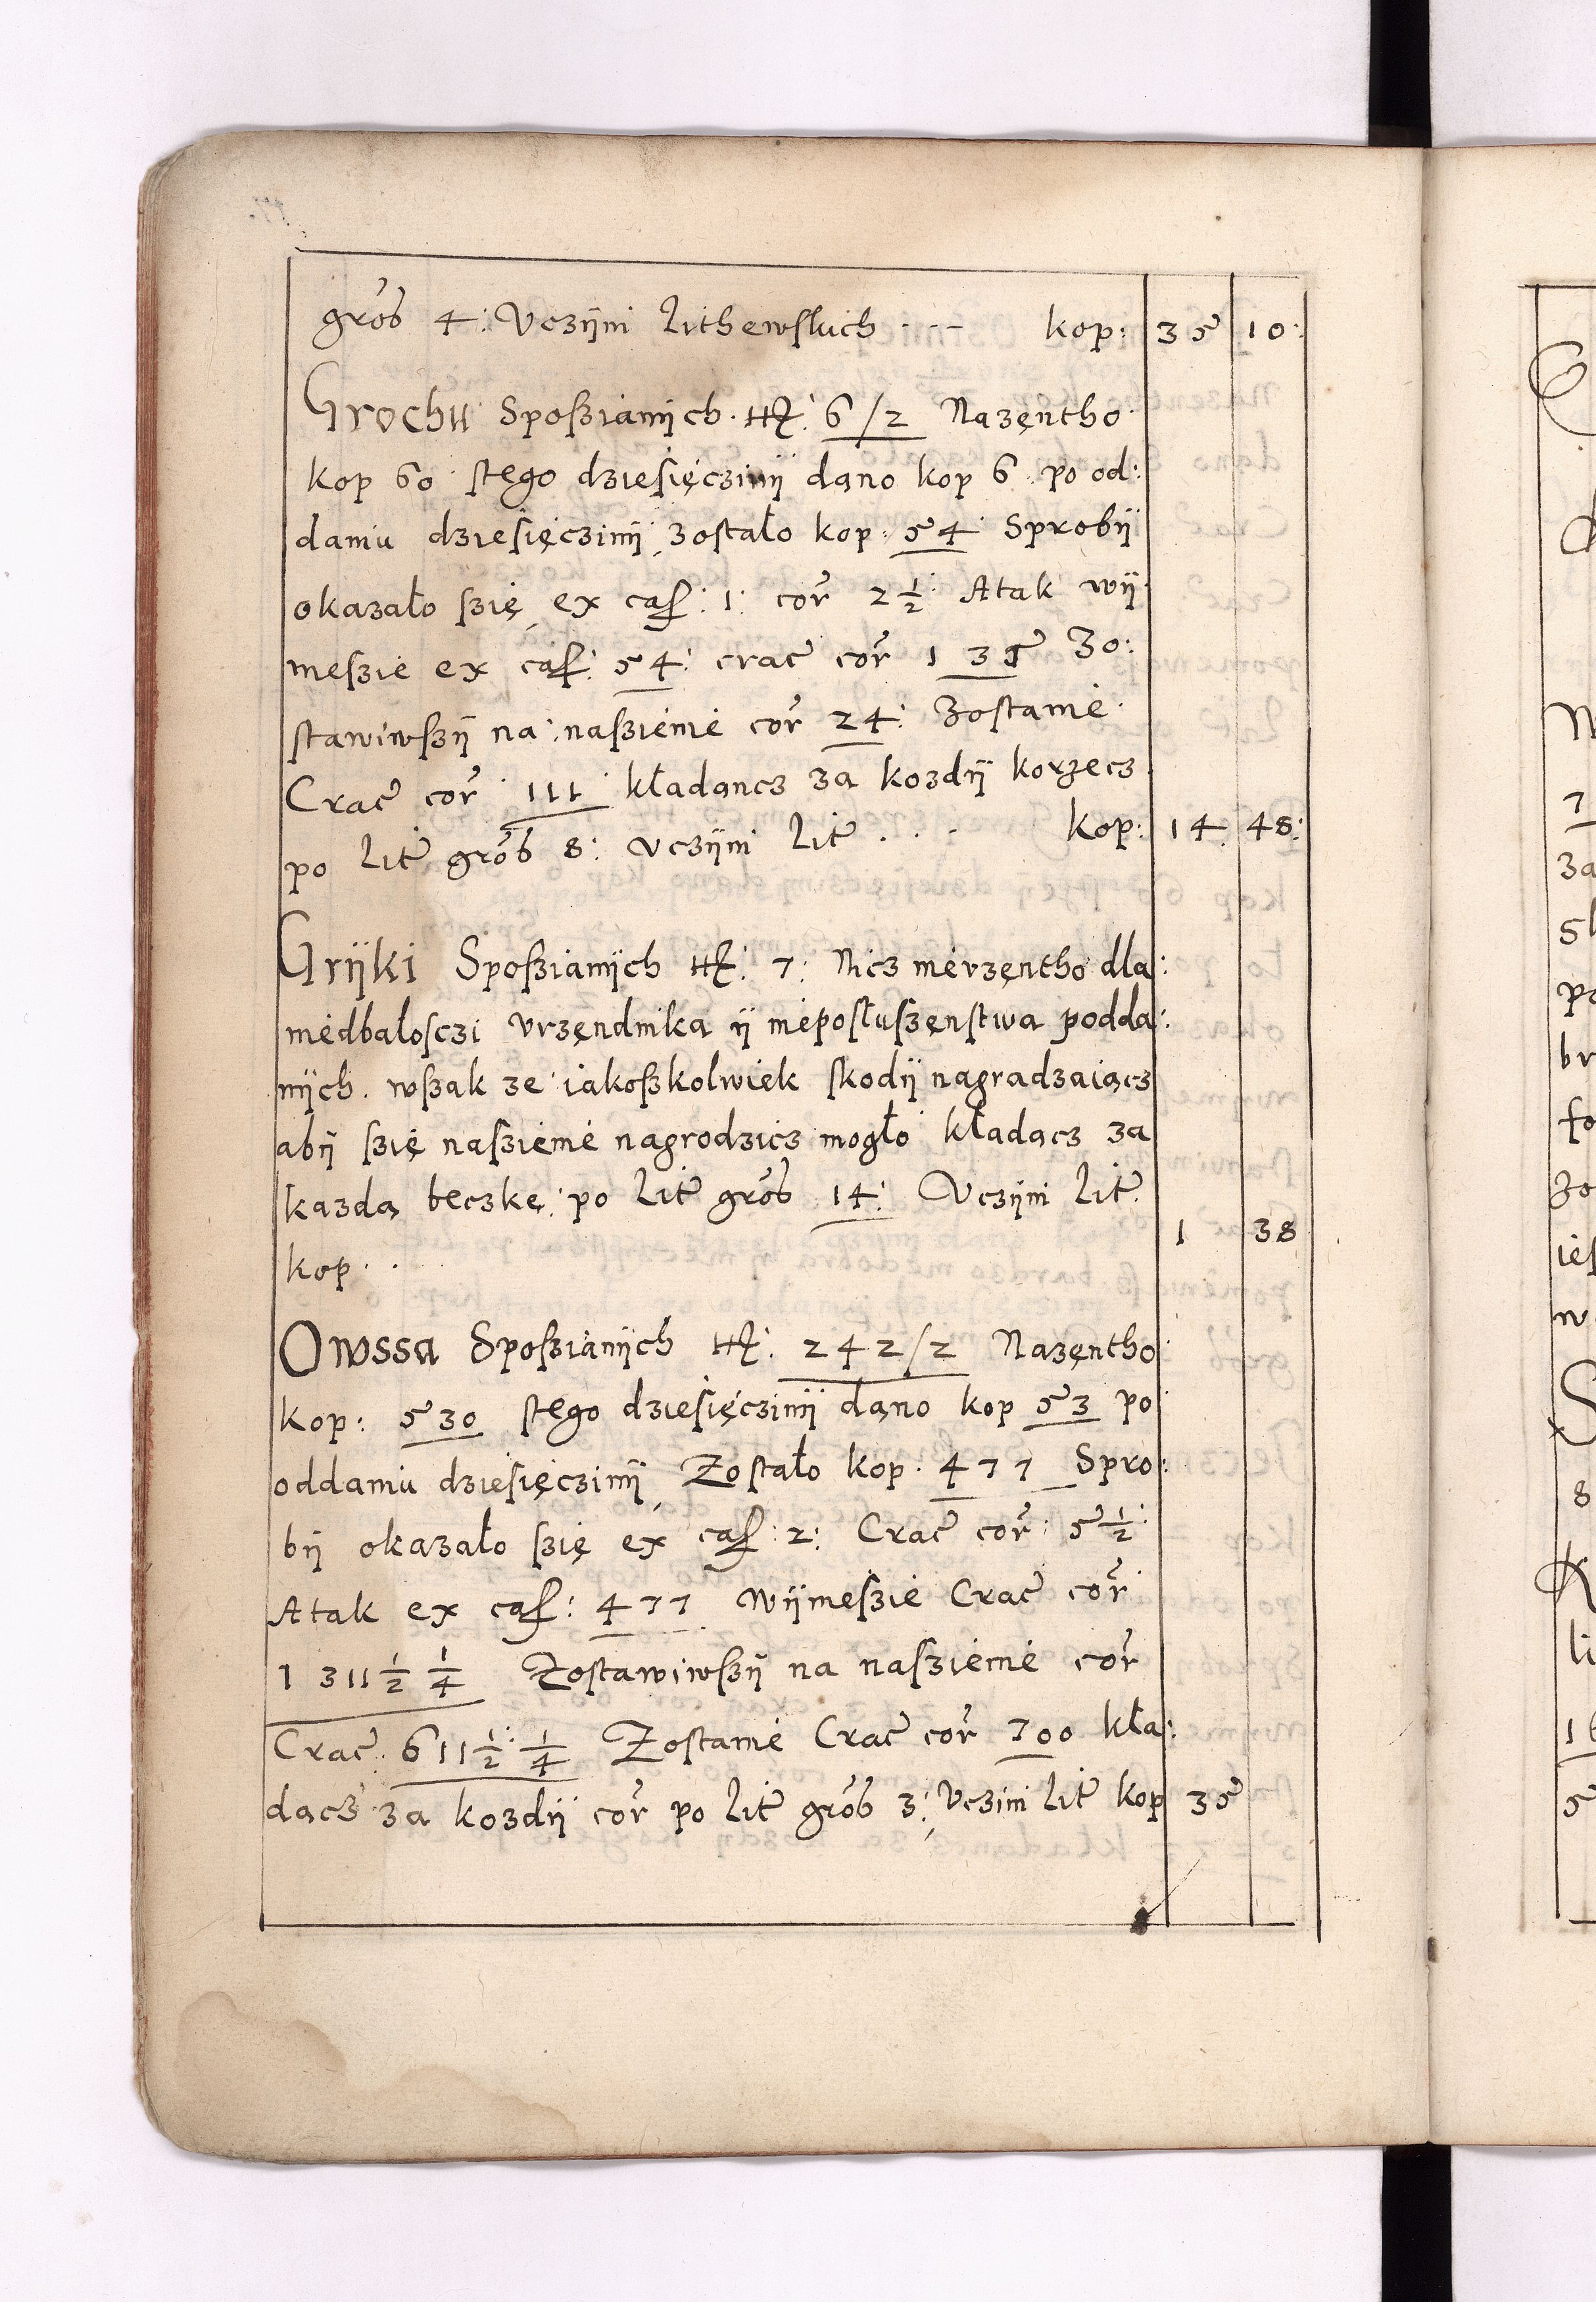 grob 4: Vczÿni Lithewskich - - - kop: 35 10:
Grochu Sposzianÿch 6/2 Nazęntho
kop 60 stego dziesięczinÿ dano kop 6 po od:
daniu dziesięczinÿ zostało kop: 54 Sprobÿ
okazało szię ex cas: 1: cor 2 1/2 Atak wÿ
nieszie ex cas: 54: crac cor 135 Zo:
stawiwszÿ na naszienie cor 24: Zostanie
Crac cor 111 kładancz za kozdÿ korzecz
po Lit grob 8: vczÿni Lit . . - kop: 14 48:
Grÿki Sposzianÿch 7: Nicz nierzęntho dla:
niedbałosczi vrzędnika ÿ nieposłuszęnstwa podda:
nÿch. wszak ze iakoszkolwiek skodÿ nagradzaiącz
abÿ szię naszienie nagrodzicz mogło kładącz za
kazdą beczkę: po Lit grob 14: Vczÿni Lit
kop . . 1 38
Owssa Sposzianÿch 242/2 Nazęntho
kop: 530 stego dziesięczinÿ dano kop 53 po
oddaniu dziesięczinÿ Zostało kop 477 Spro:
bÿ okazało szię ex cas: 2: Crac cor: 5 1/2
Atak ex cas: 477 Wÿnieszie Crac cor
1311 1/2 1/4 Zostawiwszÿ na naszienie cor
Crac 611 1/2 1/4 Zostanie Crac cor 700 kła:
dącz za kozdÿ cor po Lit grob 3: Vczini Lit kop 35